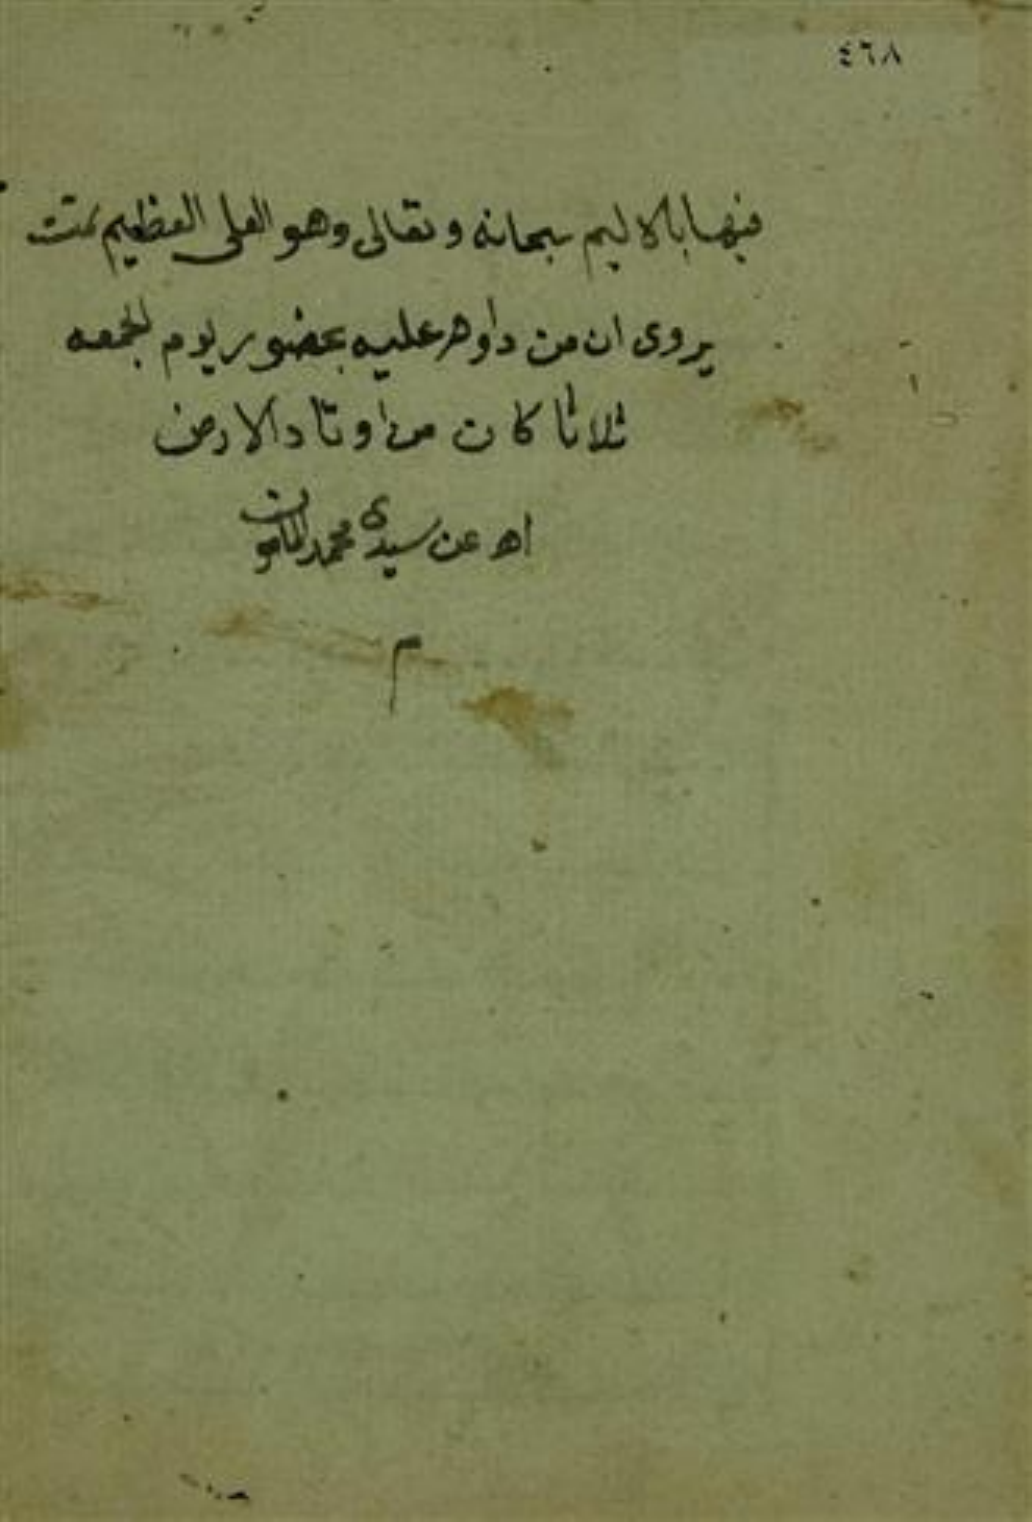 ٤٦٨
فيها بالاليم سبحانه وتعالى وهو العلى العظيم تمت
يروى ان من داوم عليه بحضور يوم الجمعه
ثلاثا كان من اوتاد الارض
اهـ عن سيدى محمد
م